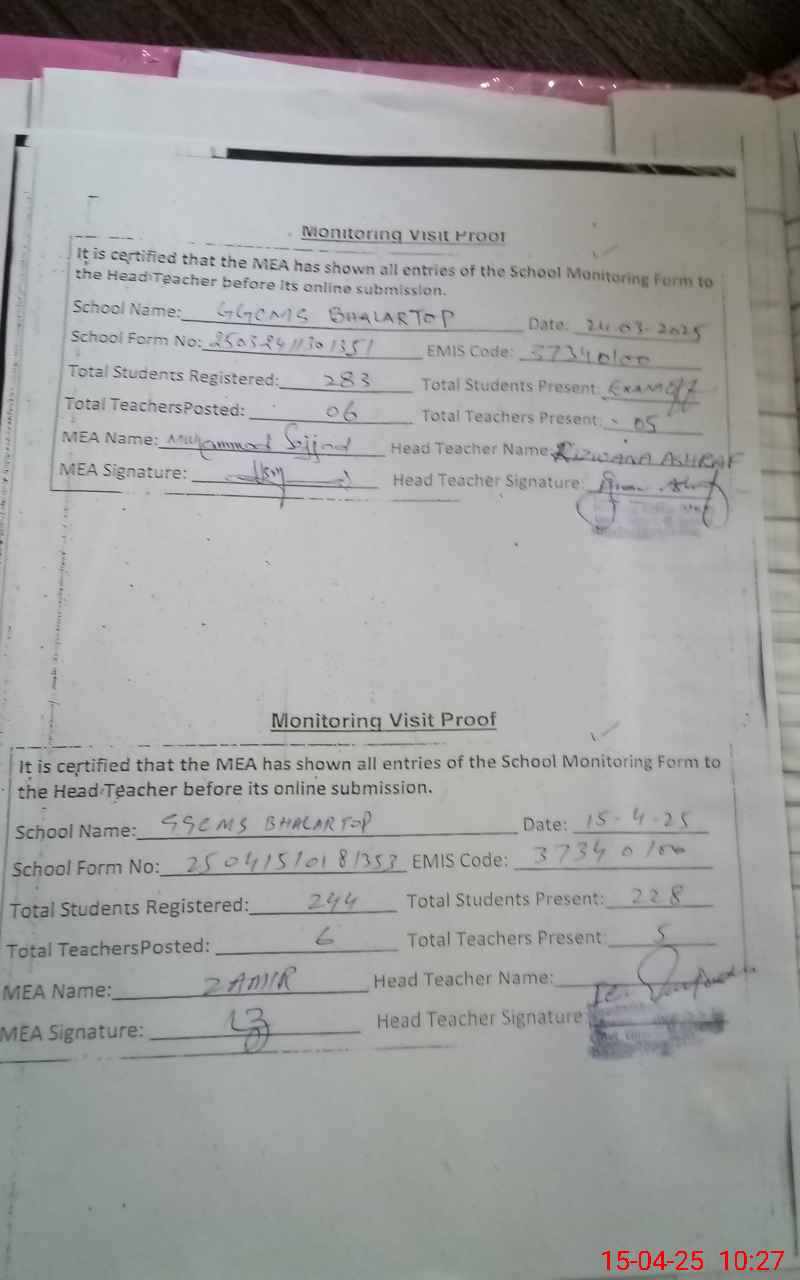 Monitoring Visit Proof
It is certified that the MEA has shown all entries of the School Monitoring Form to
the Head Teacher before its online submission.
School Name: GGCMS BHALARTOP Date: 24-03-2025
School Form No: EMIS Code: 37340100
Total Students Registered: 283 Total Students Present:
Total TeachersPosted: 06 Total Teachers Present: 05
MEA Name: Muhammad Sajjad Head Teacher Name: RIZWANA ASHRAF
MEA Signature: Head Teacher Signature:
Monitoring Visit Proof
It is certified that the MEA has shown all entries of the School Monitoring Form to
the Head Teacher before its online submission.
School Name: GGCMS BHALARTOP Date: 15-4-25
School Form No: EMIS Code: 37340100
Total Students Registered: 244 Total Students Present: 228
Total TeachersPosted: 6 Total Teachers Present 5
MEA Name: ZAMIR Head Teacher Name:
MEA Signature: Head Teacher Signature
15-04-25 10:27